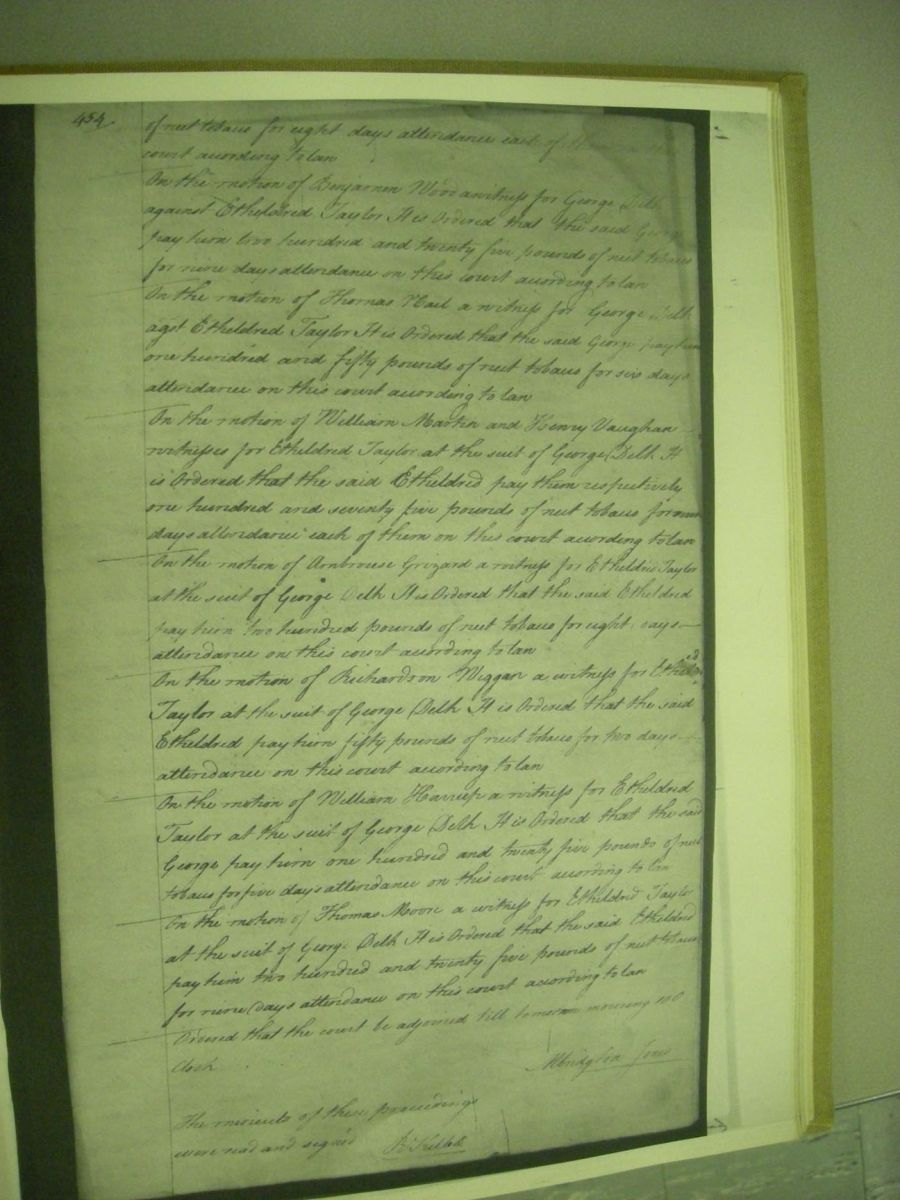 454
of neet tobaco for eight days attendance each of them
court acording to law
On the motion of Benjamen Wood a witness for George Delk
against Etheldred Taylor It is Ordered that the said George
pay him two hundred and twenty five pounds of neet tobaco
for nine days attendance on this court acording to law
On the motion of Thomas a witness for George Delk
agst Etheldred Taylor It is Ordered that the said George pay him
one hundred and fifty pounds of neet tobaco for six days
attendance on this court acording to law
On the motion of William Martin and Henry Vaughan
witnesses for Etheldred Taylor at the suit of George Delk It
is Ordered that the said Etheldred pay them respectively
one hundred and seventy five pounds of neet tobaco for
days attendance each of them on this court acording to law
On the motion of Ambrouse Grizard a witness for Etheldred Taylor
at the suit of George Delk It is Ordered that the said Etheldred
pay him two hundred pounds of neet tobaco for eight days
attendance on this court acording to law
On the motion of Richardson Wiggan a witness for Etheldred
Taylor at the suit of George Delk It is Ordered that the said
Etheldred pay him fifty pounds of neet tobaco for two days
attendance on this court acording to law
On the motion of William a witness for Etheldred
Taylor at the suit of George Delk It is Ordered that the said
George pay him one hundred and twenty five pounds of neet
tobaco for five days attendance on this court acording to law
On the motion of Thomas Moore a witness for Etheldred Taylor
at the suit of George Delk It is Ordered that the said Etheldred
pay him two hundred and twenty five pounds of neet tobaco
for nine days attendance on this court acording to law
Ordered that the court be adjoined till tomorrow morning
Clock
Jones
The minuets of these proceedings
were read and signed